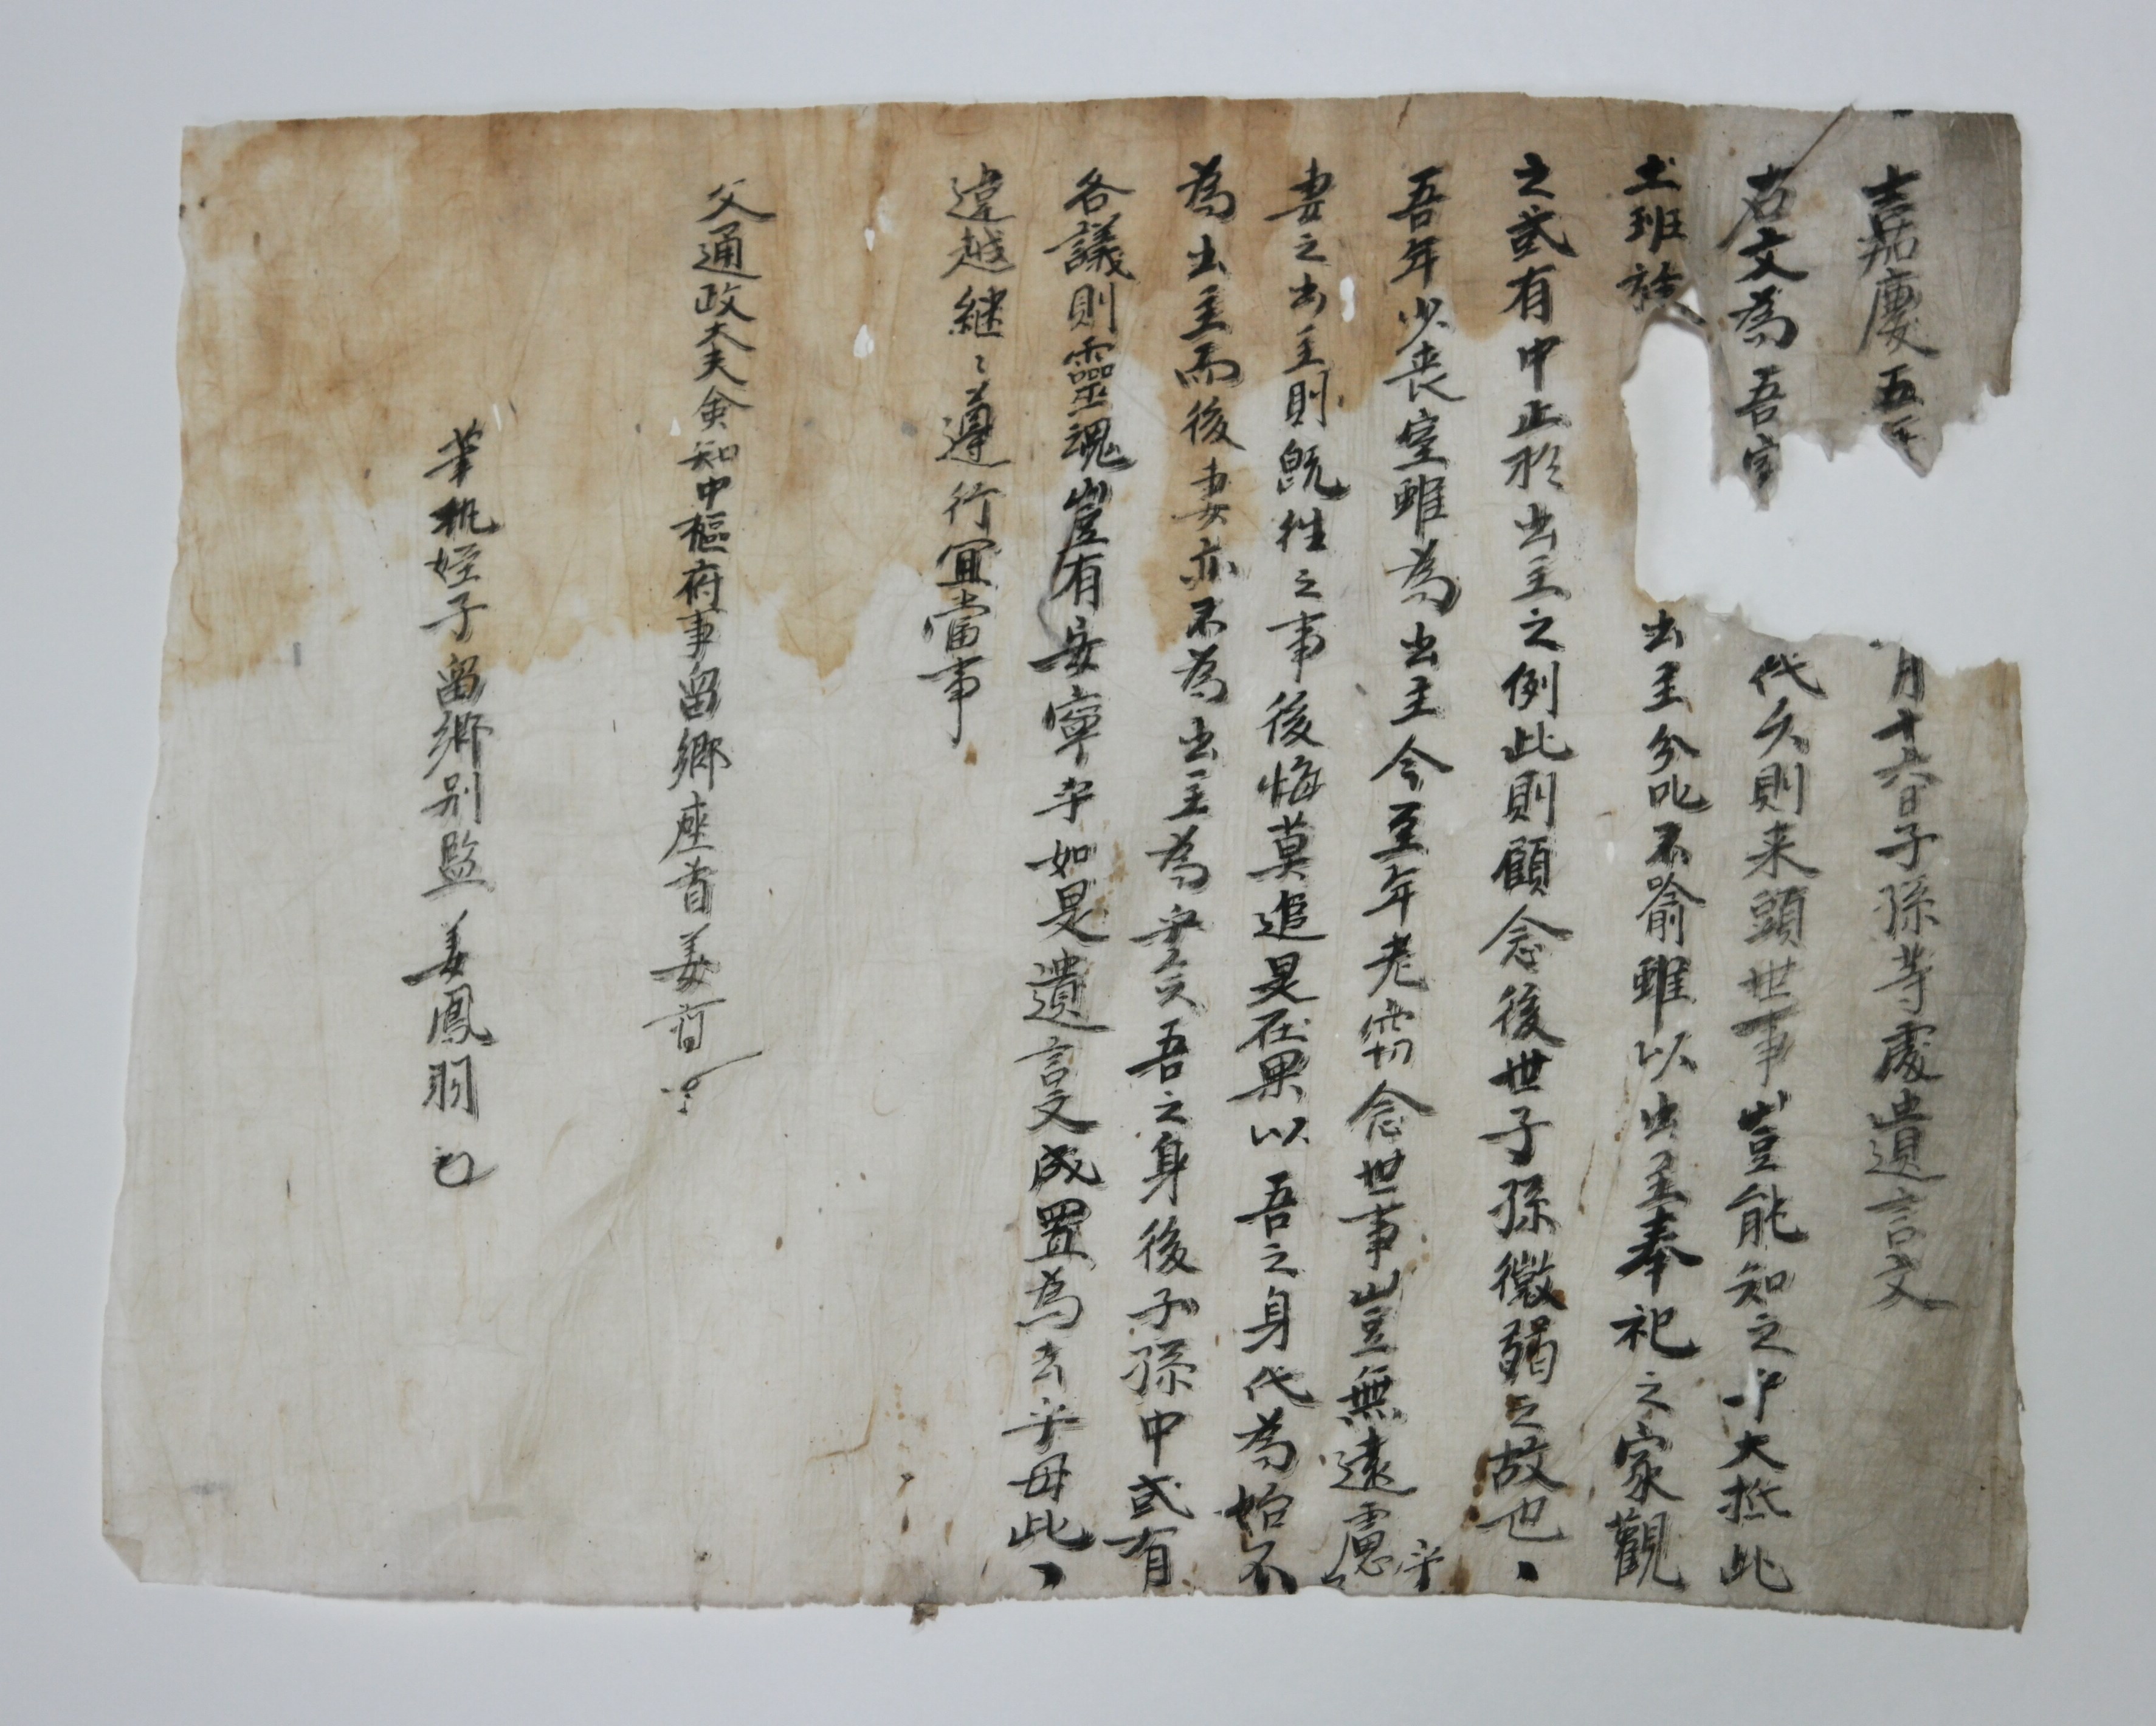 嘉慶五 月十六日子孫等處遺言文
右文為吾 代久則来頭世事豈能知之乎大抵此
土班 出主分叱不喻雖以出主奉祀之家觀
之或有中止於出主之例此則顧念後世子孫微弱之故也
吾年少丧室雖為出主今至年老窃念世事豈無遠慮乎
妻之出主則既往之事後悔莫追是在果以吾之身代為始不
為出主而後妻亦不為出主為 吾之身後子孫中或有
各議則靈魂豈有安寧乎如是遺言文成置為去乎毋此
違越継〻遵行宜當事
父通政大夫僉知中樞府事留鄉座首姜
筆執姪子留鄉别監姜鳳羽